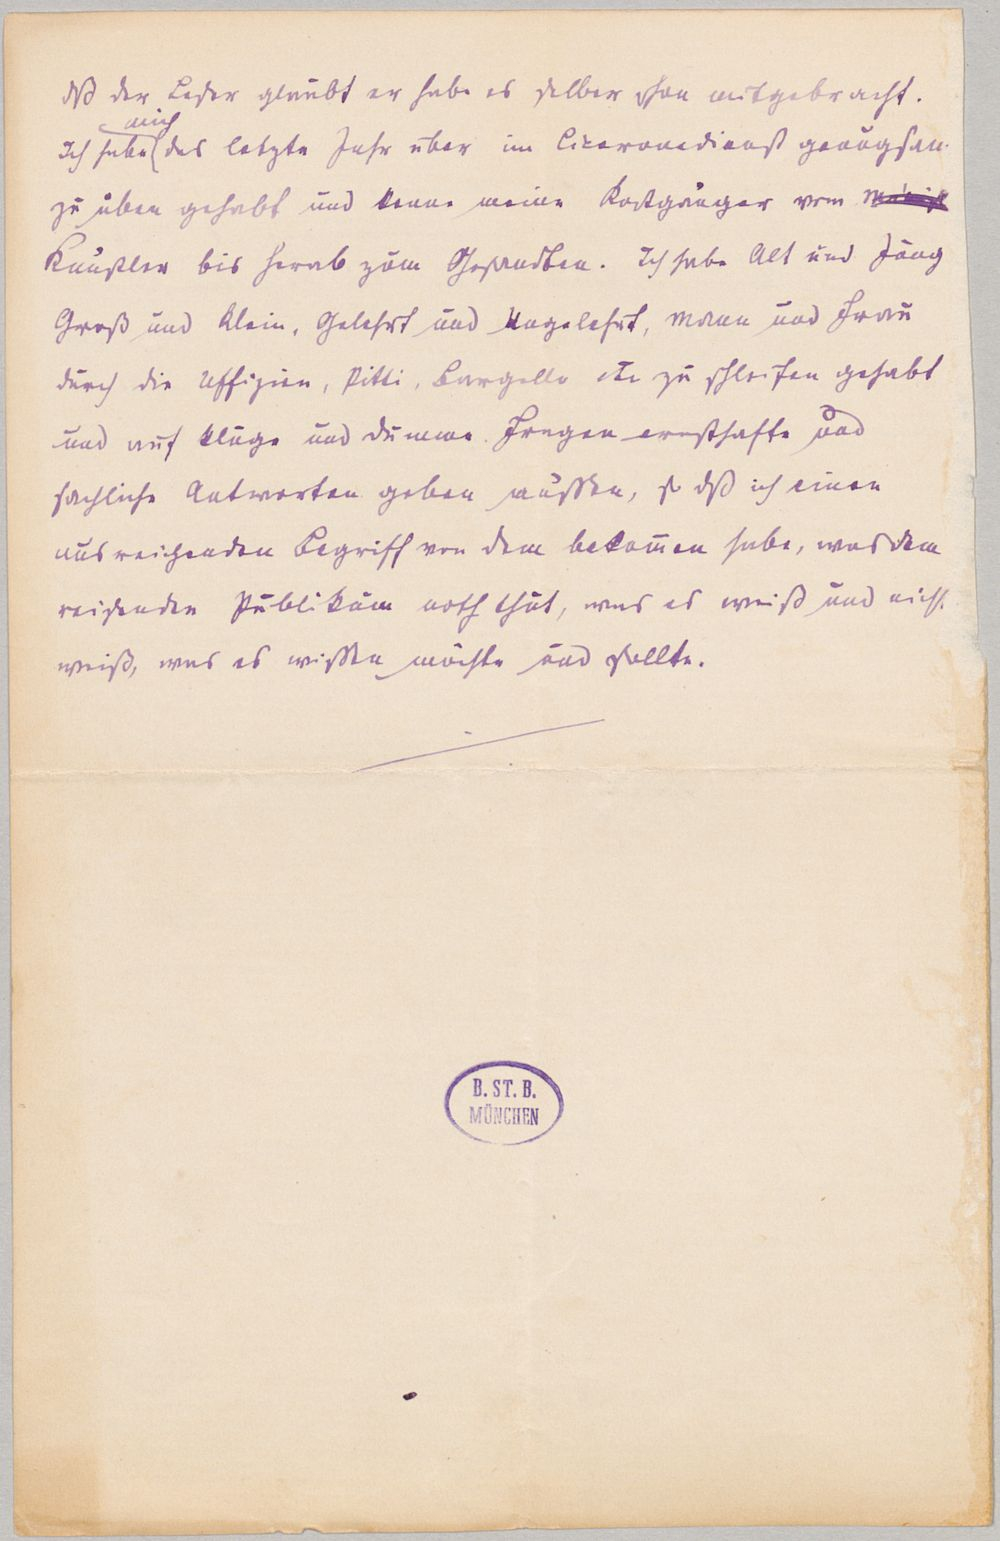 dß der Leser glaubt er habe es selber schon mitgebracht.
mich
Ich habe das letzte Jahr über im Ciceronedienst genugsam
zu üben gehabt und kenne meine Kostgänger vom
Künstler bis herab zum Gesandten. Ich habe Alt und Jung
Groß und Klein, Gelehrt und Ungelehrt, Mann und Frau
durch die Uffizien, Pitti, Bargello etc zu schleifen gehabt
und auf kluge und dumme Fragen ernsthafte und
sachliche Antworten geben müssen, so dß ich einen
ausreichenden Begriff von dem bekommen habe, was dem
reisenden Publikum noth thut, was es weiß und nicht
weiß, was es wissen möchte und sollte.
B. ST. B.
MÜNCHEN